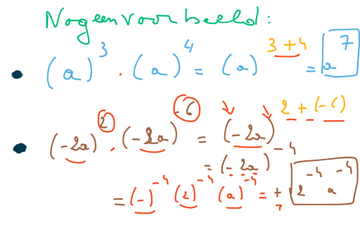 Nog een voorbeeld:
• (a)³ · (a)⁴ = (a)³⁺⁴ = a⁷
• (-2a)² · (-2a)⁻⁶ = (-2a)²⁺⁽⁻⁶⁾
= (-2a)⁻⁴
= (-)⁻⁴ (2)⁻⁴ (a)⁻⁴ = + 2⁻⁴ a⁻⁴